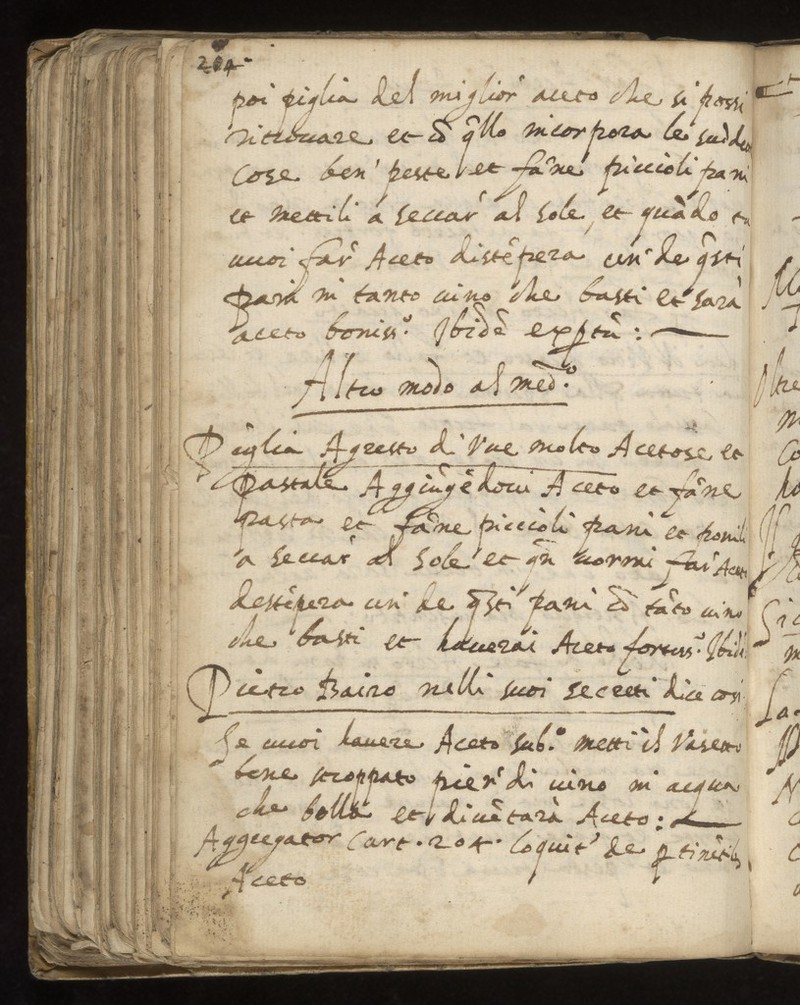 204
poi piglia del miglior aceto che si possi
ritrouare et cō q̄llo incorpora le sudde
cose ben' peste et fāne piccioli pani
et mettili a seccar' al sole, et quādo tu
uuoi far' Aceto distēpera un' de q̄sti
pani in tanto uino che basti et sarà
aceto boniss.º Ibidē expertū:
Altro modo al med.º
Piglia Agresto di Vue molto Acetose et
pastale Aggiūgēdoui Aceto et fāne
pasta et fāne piccioli pani et ponili
a seccar' al sole et qn̄ uorrai far' Aceto
destēpera un' de q̄sti pani cō tāto uino
che basti et hauerai Aceto fortiss.º Ibidē
Pietro Bairo nelli suoi secreti dice cosi
Se uuoi hauere Aceto sub.º metti il Vasetto
bene stoppato pien' di uino in acqua
che bolla et diuētarà Aceto:
Aggregator Cart. 204. loquit' de ꝑtinētibus
Aceto